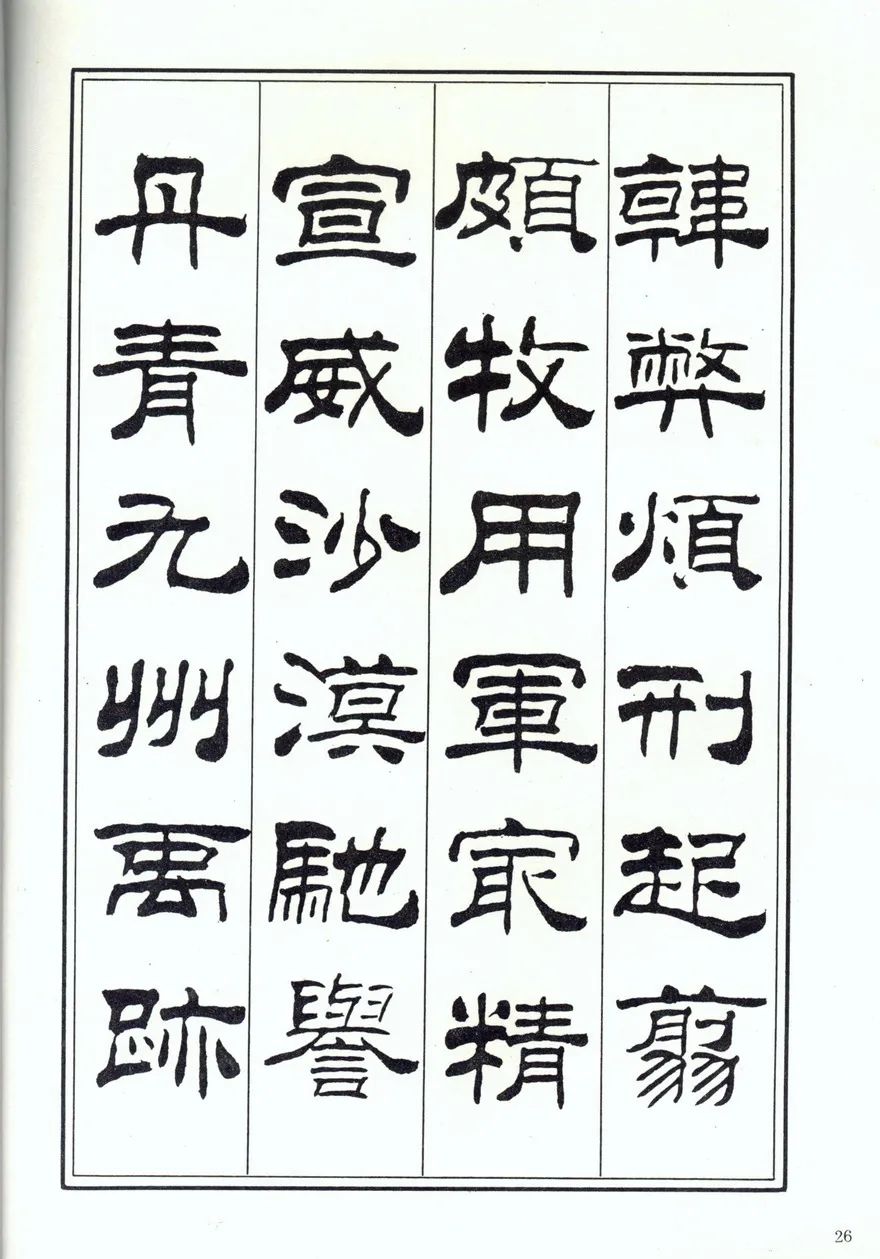 韓弊煩刑起翦
頗牧用軍冣精
宣威沙漠馳譽
丹青九州禹跡
26